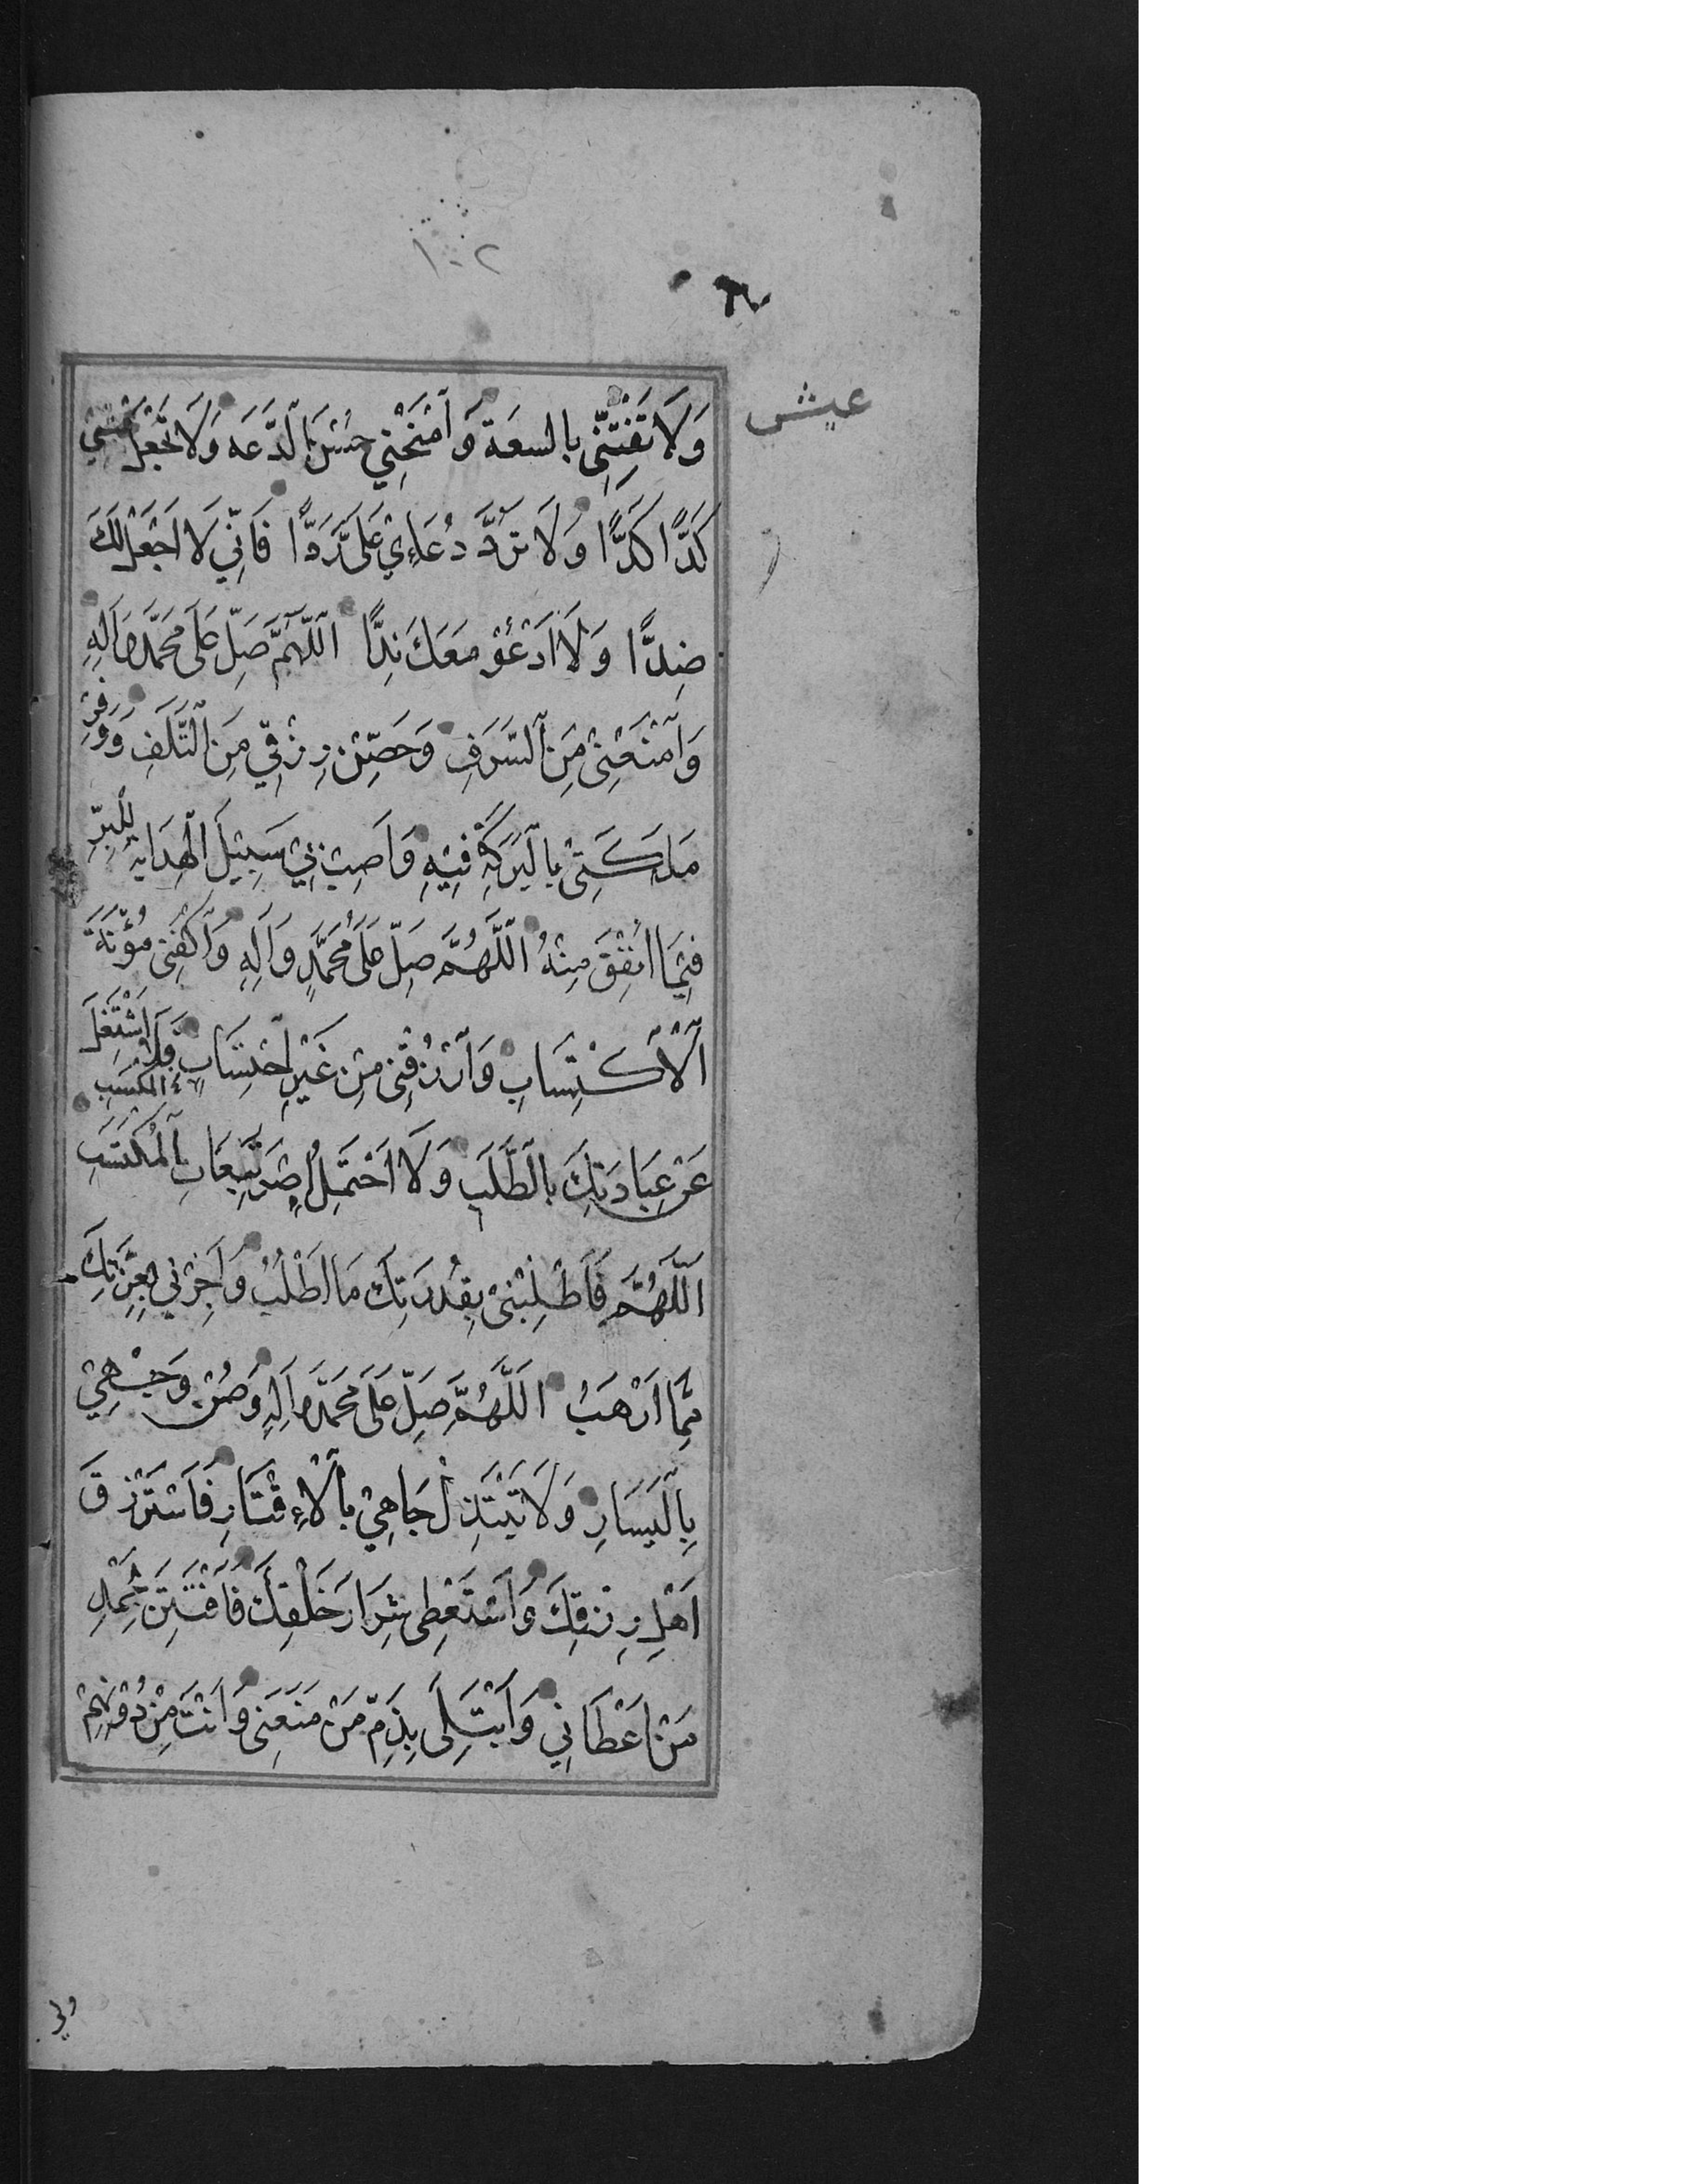 ١٠٢
عيش
وَلَا تَفْتِنِّى بالسعَة وَ اَمْنَحْنِي حُسْنَ الدَّعَه وَلَا تَجْعَل عَيْشِي
كَدًّا كَدًّا وَلَا تَرُدَّ دُعَاءِي عَلَىَّ رَدًّا فَاِنِّي لَا اَجْعَل لَكَ
ضِدًّا وَلَا اَدْعُوْ مَعَكَ نِدًّا اَللّهُمَّ صَلِّ عَلَى مُحَمَّدٍ وَاَلِهِ
وَاَمْنَعْنِىْ مِنَ السَّرَفِ وَحَصِّنْ رِزْقِي مِنَ التَّلَفِ وَوَفِّرْ
مَلَكَتِىْ بِالْبَرَكَةِ فِيْهِ وَاَصِبْ بِيْ سَبِيْلَ الْهِدَايَةِ لِلْبِرِّ
فِيْمَا اُنْفِقَ مِنْهُ اَللَّهُمَّ صَلِّ عَلَى مُحَمَّدٍ وَاَلِهِ وَاكْفِنِى مُؤْنَةَ
اَلْاكْتِسَابِ وَارْزُقْنِى مِنْ غَيْرِ اَحْتِسَابٍ فَلَا اَشْتَغِلَ
المكسب
عَنْ عِبَادَتِكَ بِالطَّلَبِ وَلَا اَحْتَمِلُ اِصْرَ تَبِعَاتِ الْمُكْتَسَبِ
اَللَّهُمَّ فَاَطْلِبْنِىْ بِقُدْرَتِكَ مَا اَطْلُبُ وَاَجِرْنِي بِعِزَّتِكَ
مِمَّا اَرْهَبُ اَللَّهُمَّ صَلِّ عَلَى مُحَمَّدٍ وَاَلِهِ وَصُنْ وَجْهِيْ
بِالْيَسَارِ وَلَا تَبْتَذِلْ جَاهِيْ بِالْاِءقْتَارِ فَاَسْتَرْزِقَ
اَهْلَ رِزْقِكَ وَاَسْتَعْطِى شِرَارَ خَلْقِكَ فَاَفْتَتِنَ بِحَمْدِ
مَنْ اَعْطَانِي وَاَبْتَلَى بِذَمِّ مَنْ مَنَعَنِى وَاَنْتَ مِنْ دُوْنِهِمْ
ولي